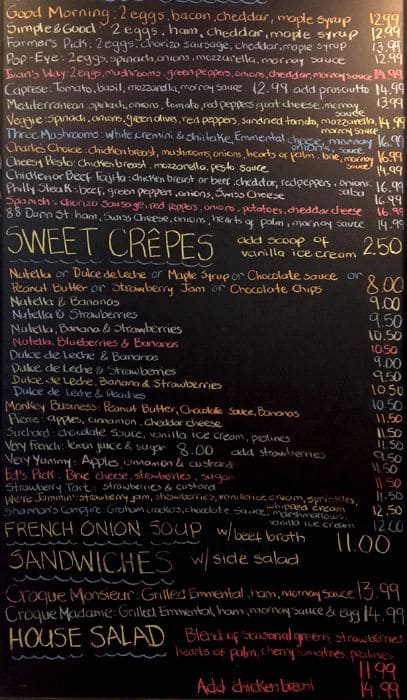 Good Morning: 2 eggs, bacon, cheddar, maple syrup 12.99
Simple & Good: 2 eggs, ham, cheddar, maple syrup 12.99
Farmer's Pick: 2 eggs, chorizo sausage, cheddar, maple syrup 13.99
Pop-Eye: 2 eggs, spinach, onions, mozzarella, mornay sauce 12.99
Ivan's Way: 2 eggs, mushrooms, green peppers, onions, cheddar, mornay sauce 14.99
Caprese: Tomato, basil, mozzarella, mornay sauce 12.99 add prosciutto 14.99
Mediterranean: spinach, onions, tomato, red peppers, goat cheese, mornay sauce 13.99
Veggie: spinach, onions, green olives, red peppers, sundried tomato, mozzarella, mornay sauce 14.99
Three Mushrooms: white, cremini & shiitake, Emmental cheese, mornay onions, sauce 16.99
Charlie's Choice: chicken breast, mushrooms, onions, hearts of palm, brie, mornay sauce 16.99
Cheesy Pesto: chicken breast, mozzarella, pesto sauce 14.99
Chicken or Beef Fajita: chicken breast or beef, cheddar, red peppers, onions, salsa 16.99
Philly Steak: beef, green peppers, onions, Swiss Cheese 16.99
Spanish: chorizo sausage, red peppers, onions, potatoes, cheddar cheese 16.99
88 Dunn St: ham, Swiss Cheese, onions, hearts of palm, mornay sauce 14.99
SWEET CRÊPES add scoop of vanilla ice cream 2.50
Nutella or Dulce de Leche or Maple Syrup or Chocolate sauce or
Peanut Butter or Strawberry Jam or Chocolate Chips 8.00
Nutella & Bananas 9.00
Nutella & Strawberries 9.50
Nutella, Banana & Strawberries 10.50
Nutella, Blueberries & Bananas 10.50
Dulce de Leche & Bananas 9.00
Dulce de Leche & Strawberries 9.50
Dulce de Leche, Banana & Strawberries 10.50
Dulce de Leche & Peaches 10.50
Monkey Business: Peanut Butter, Chocolate Sauce, Bananas 11.50
Pierre: apples, cinnamon, cheddar cheese 11.50
Suchard: chocolate sauce, vanilla ice cream, pralines 11.50
Very French: lemon juice & sugar 8.00 add strawberries 9.50
Very Yummy: Apples, cinnamon & custard 11.50
Ed's Pick: Brie cheese, strawberries, sugar 11.50
Strawberry Tart: strawberries & custard 11.50
We're Jammin': strawberry jam, strawberries, vanilla ice cream, sprinkles, whipped cream 12.50
Shannon's Campfire: Graham crackers, chocolate sauce, marshmallows, vanilla ice cream 12.00
FRENCH ONION SOUP w/beef broth 11.00
SANDWICHES w/ side salad
Croque Monsieur: Grilled Emmental, ham, mornay sauce 13.99
Croque Madame: Grilled Emmental, ham, mornay sauce & egg 14.99
HOUSE SALAD Blend of seasonal greens, strawberries
hearts of palm, cherry tomatoes, pralines
11.99
Add chicken breast 14.99